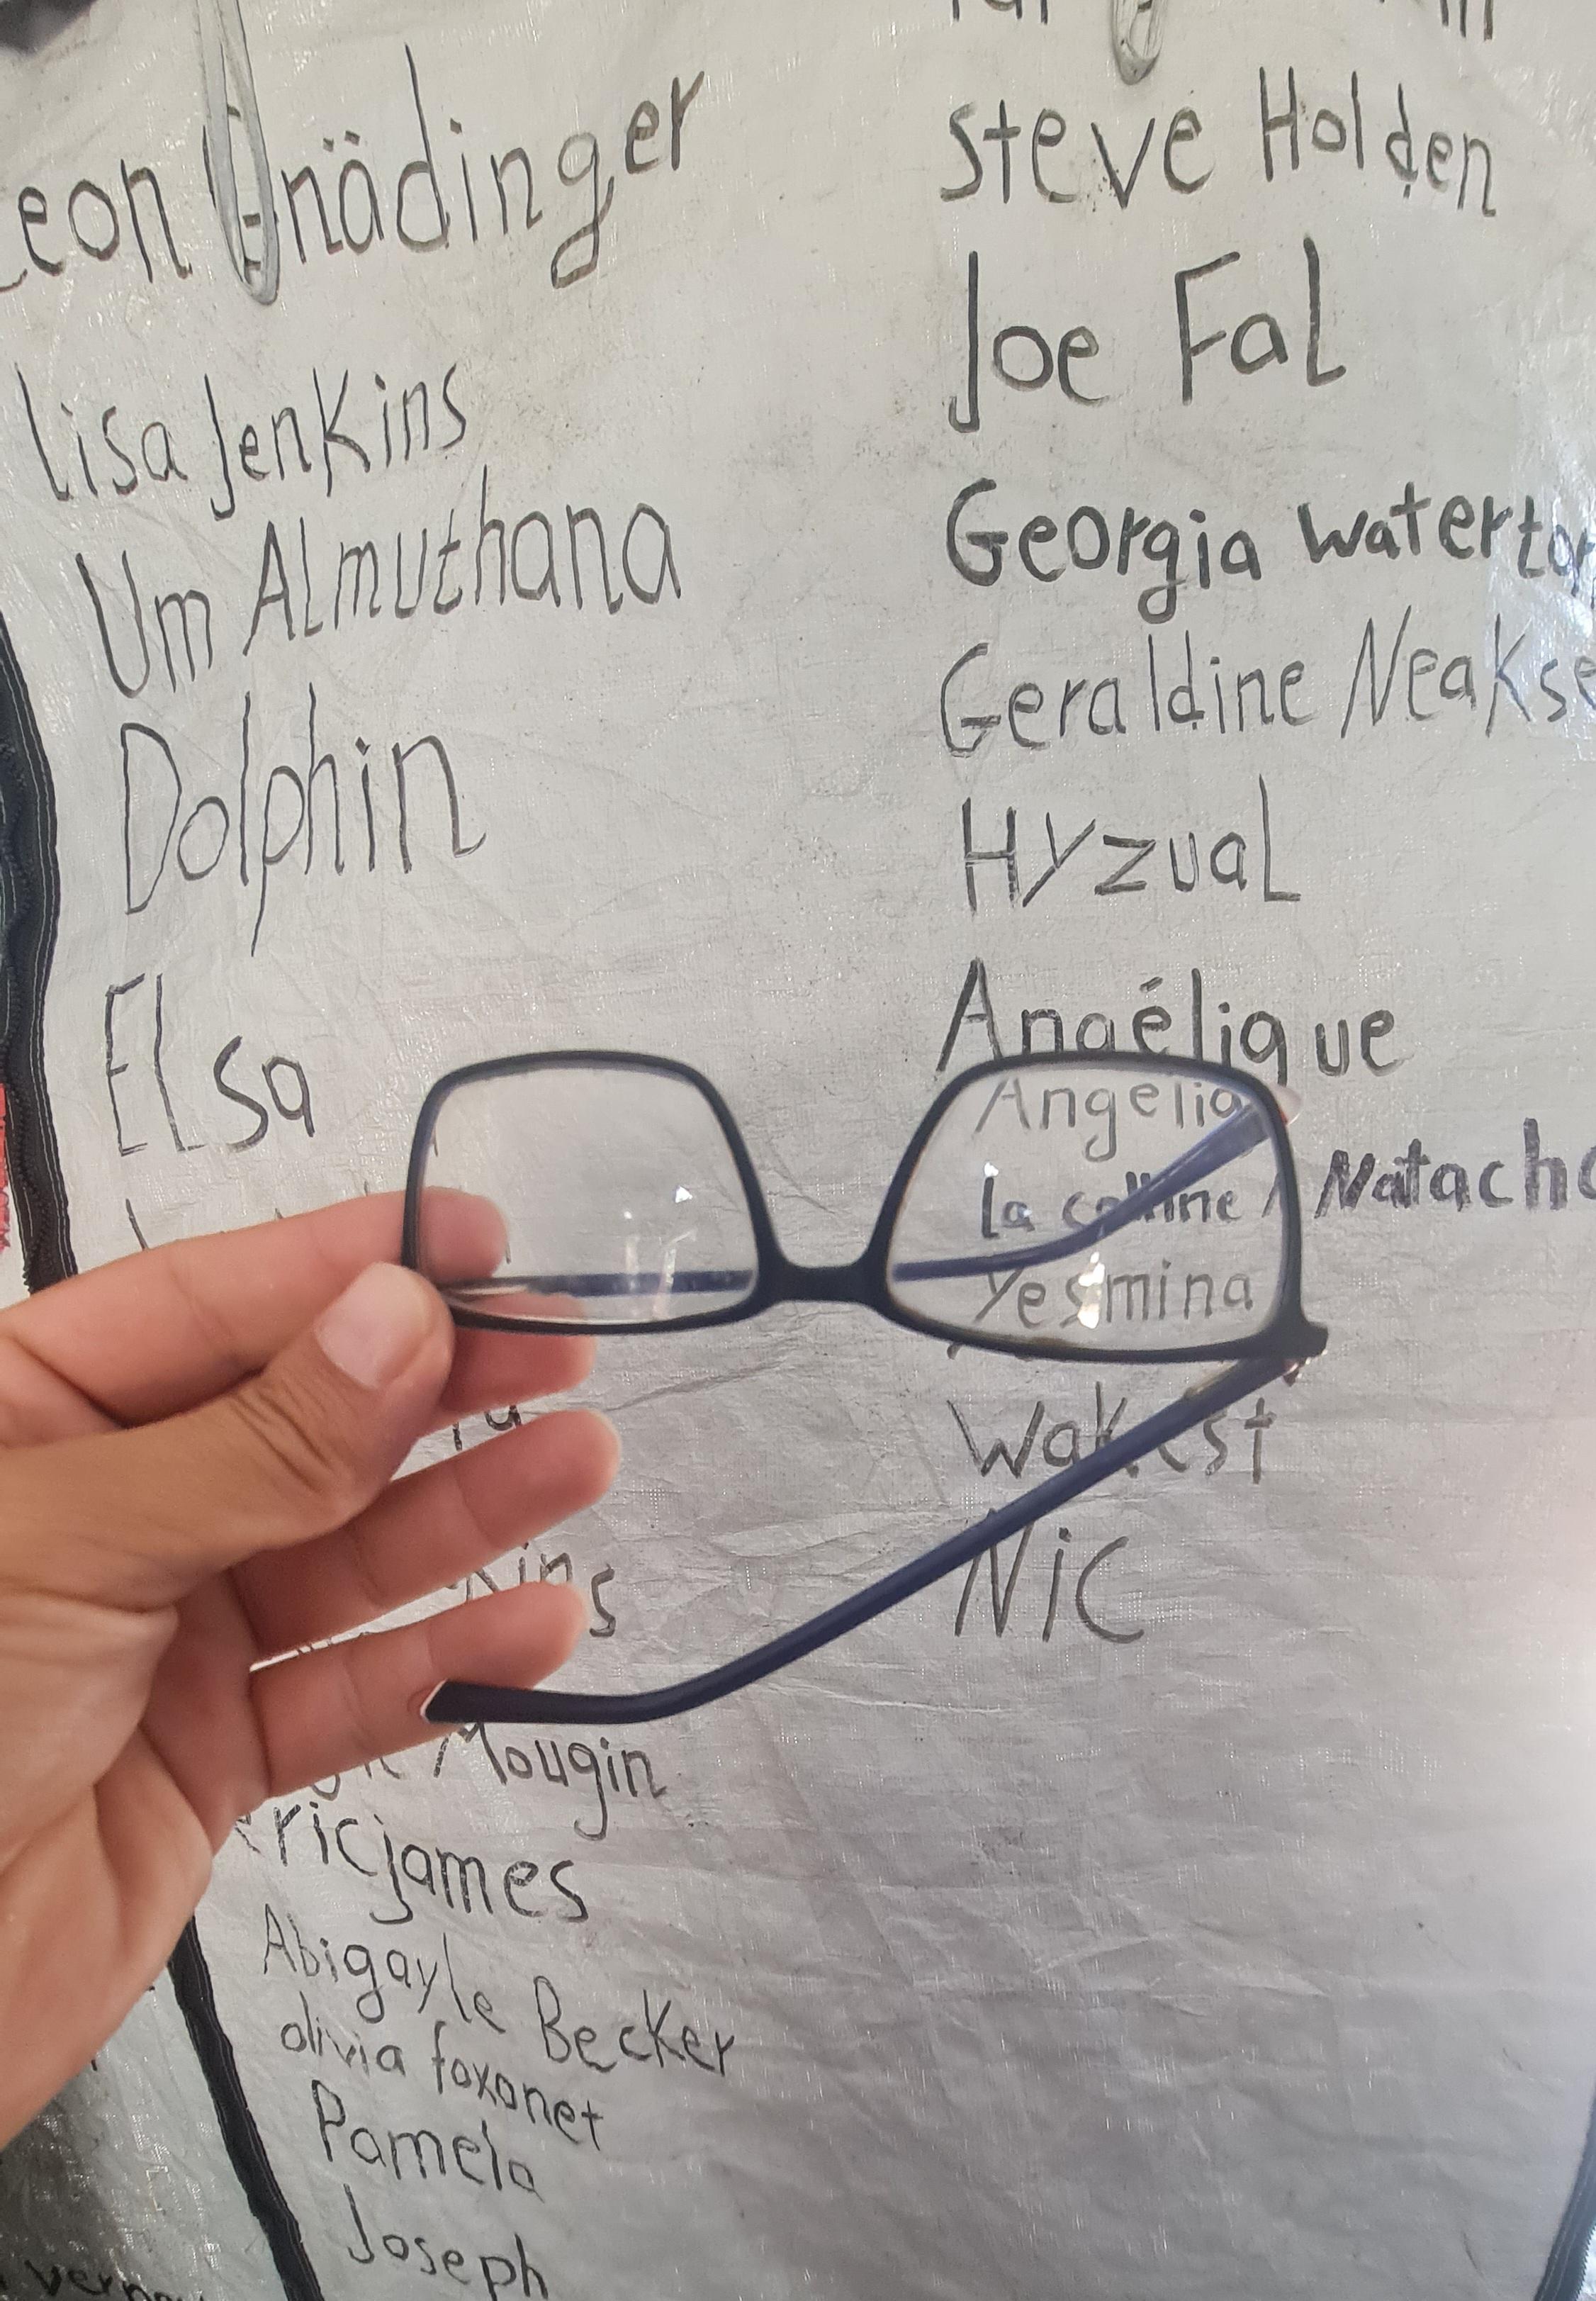 Leon Gnädinger
lisa Jenkins
Um Almuthana
Dolphin
Elsa
Mougin
ricjames
Abigayle Becker
olivia foxonet
Pamela
Joseph
Steve Holden
Joe Fal
Georgia
Geraldine
Hyzual
Angélique
la colline / Natacha
Yesmina
Nic